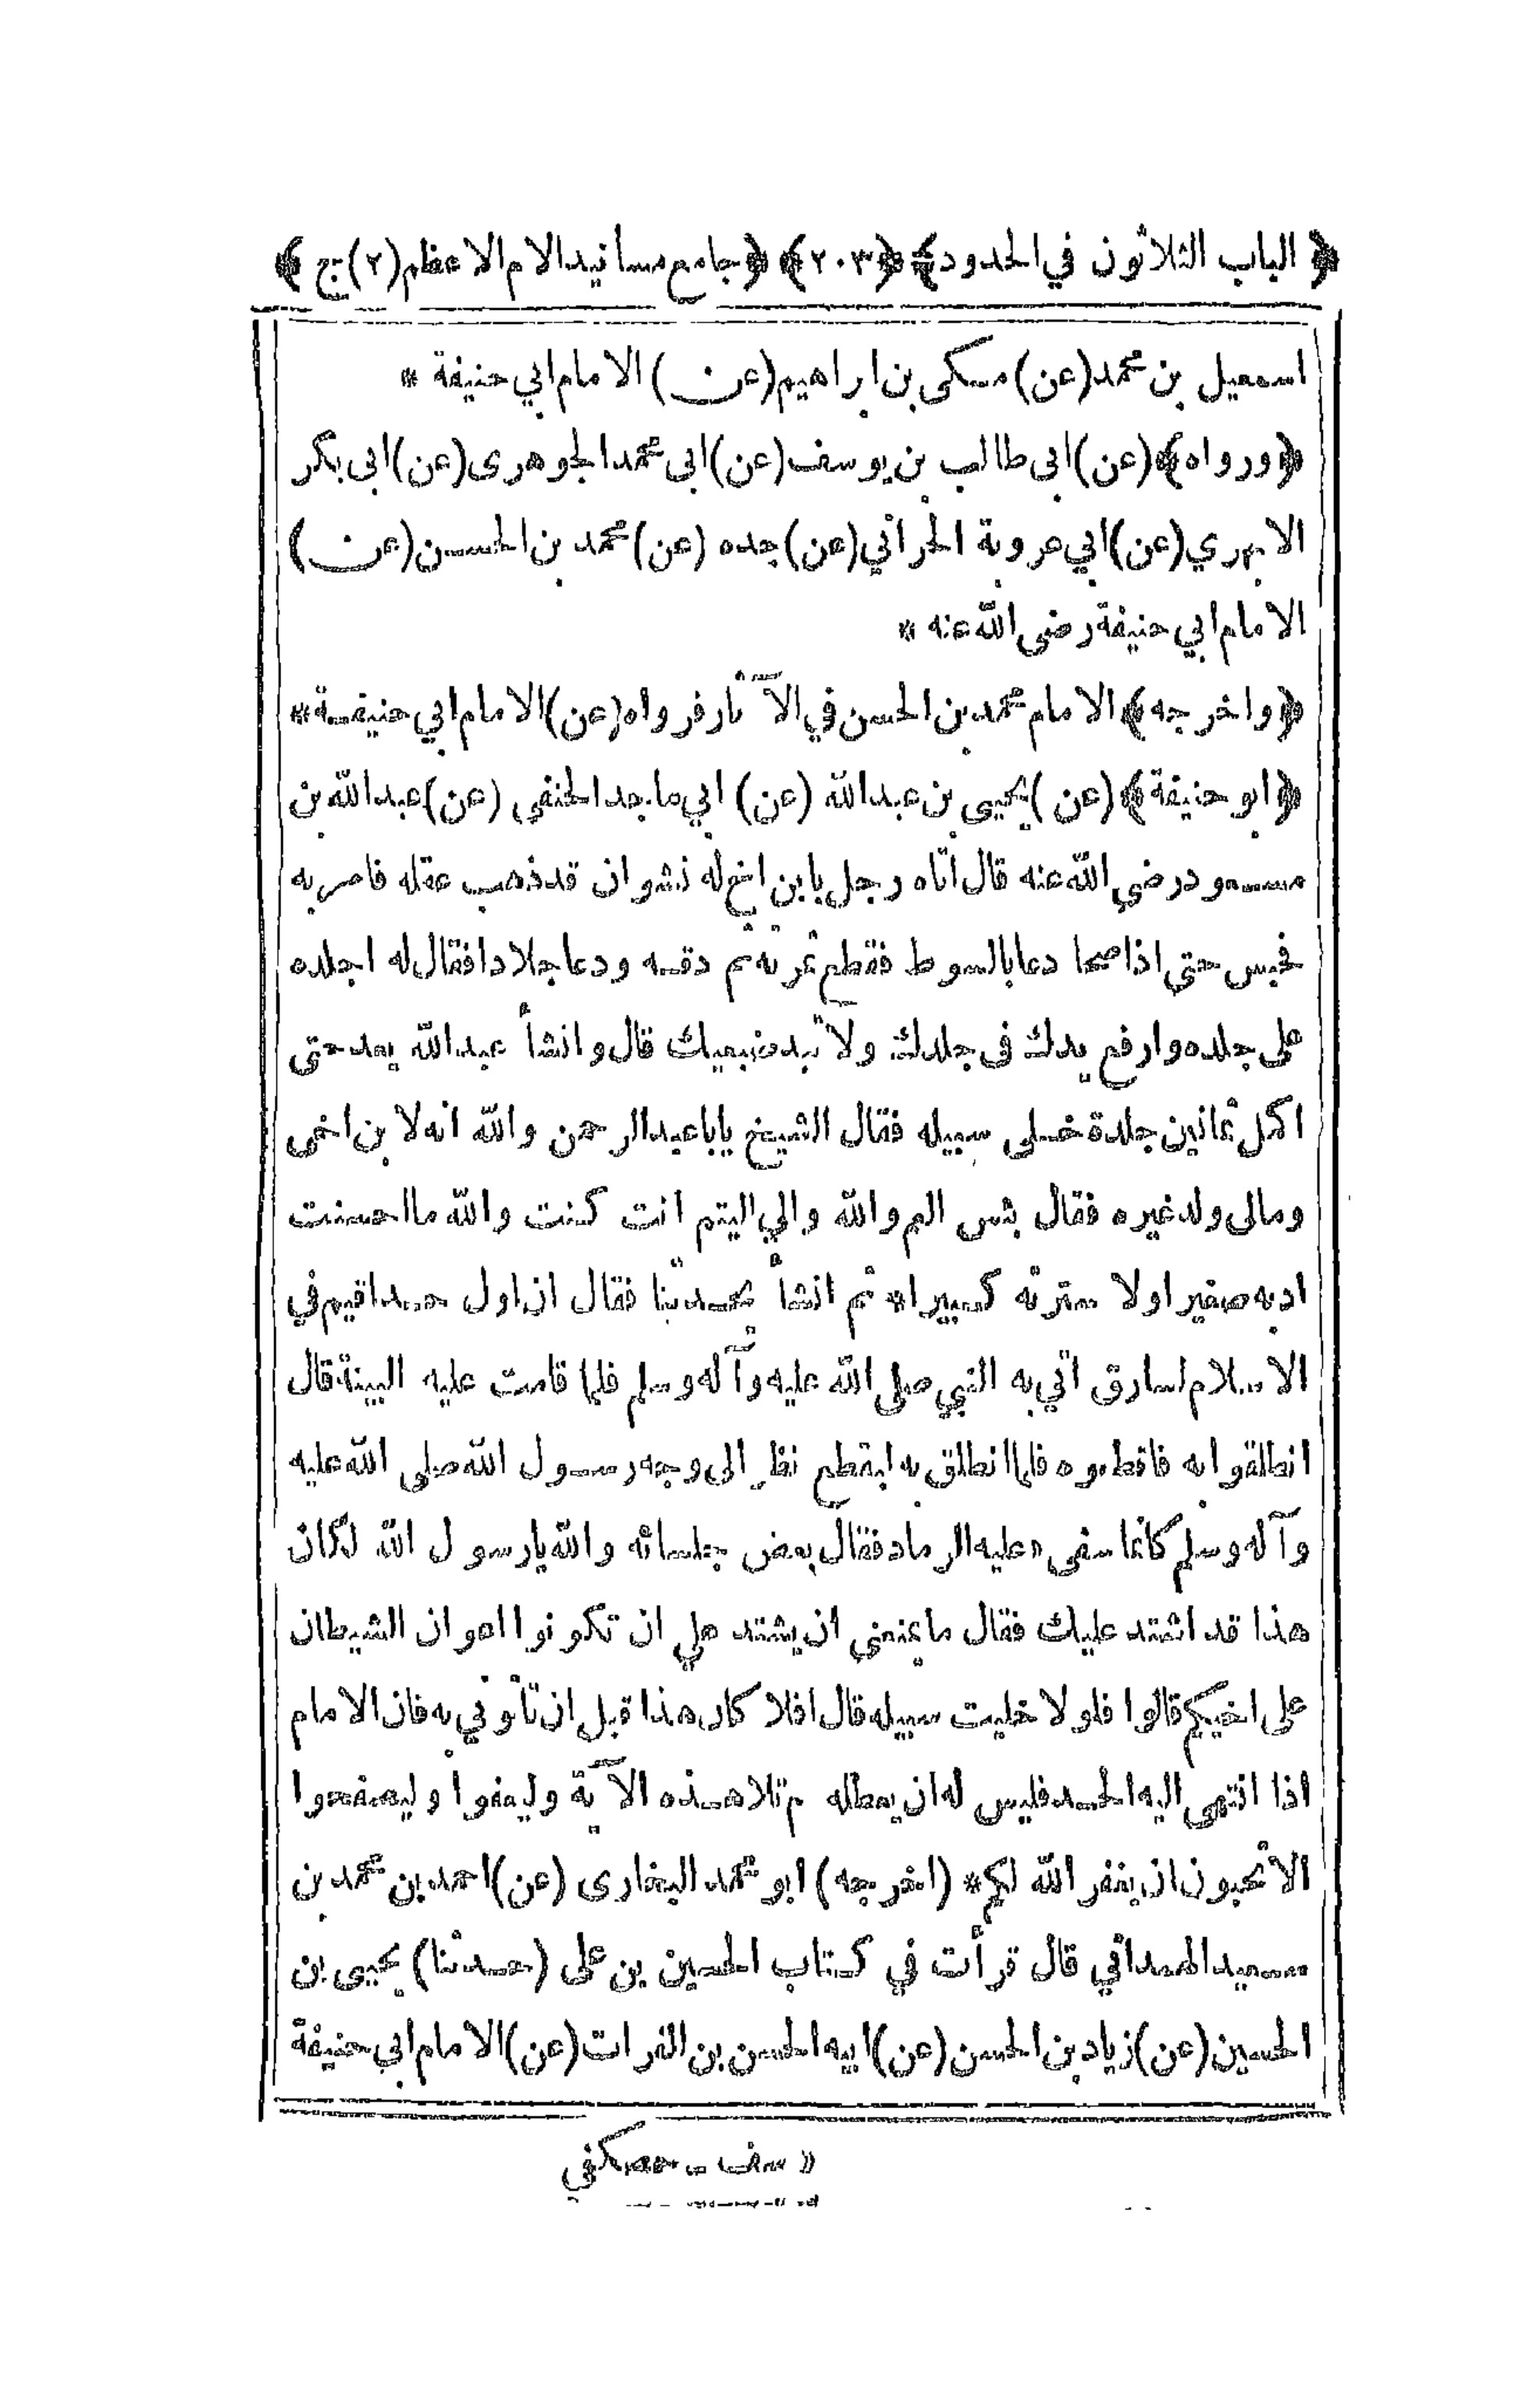 ﴿ الباب الثلاثون في الحدود ﴾ ﴿٢٠٣﴾ ﴿ جامع مسانيد الامام الاعظم (٢) ج ﴾
اسمعيل بن محمد (عن) مكى بن ابراهيم (عن) الامام ابي حنيفة *
﴿ ورواه ﴾ (عن) ابى طالب بن يوسف (عن) ابى محمد الجوهرى (عن) ابى بكر
الابهري (عن) ابي عروبة الحراني (عن) جده (عن) محمد بن الحسن (عن)
الامام ابي حنيفة رضى الله عنه *
﴿ واخرجه ﴾ الامام محمد بن الحسن في الآثار فرواه (عن) الامام ابي حنيفة *
﴿ ابو حنيفة ﴾ (عن) يحيى بن عبدالله (عن) ابي ماجد الحنفي (عن) عبدالله بن
مسعود رضي الله عنه قال اتاه رجل بابن اخ له نشوان قد ذهب عقله فامر به
فحبس حتى اذا صحا دعا بالسوط فقطع ثمرته ثم دقه ودعا جلادا فقال له اجلده
على جلده وارفع يدك في جلدك ولا تبد ضبعيك قال وانشأ عبدالله يعد حتى
اكمل ثمانين جلدة خلى سبيله فقال الشيخ يابا عبدالرحمن والله انه لابن اخى
ومالى ولد غيره فقال بئس العم والله والي اليتيم انت كنت والله ما احسنت
ادبه صغيرا ولا سترته كبيرا * ثم انشأ يحدثنا فقال ان اول حد اقيم في
الاسلام لسارق اتي به النبي صلى الله عليه وآله وسلم فلما قامت عليه البينة قال
انطلقوا به فاقطعوه فلما انطلق به ليقطع نظر الى وجه رسول الله صلى الله عليه
وآله وسلم كانما سفى « عليه الرماد فقال بعض جلسائه والله يارسول الله لكان
هذا قد اشتد عليك فقال ما يمنعنى ان يشتد علي ان تكونوا اعوان الشيطان
على اخيكم قالوا فلولا خليت سبيله قال افلا كان هذا قبل ان تأتوني به فان الامام
اذا انتهى اليه الحد فليس له ان يعطله ثم تلا هذه الآية وليعفوا وليصفحوا
الا تحبون ان يغفر الله لكم * (اخرجه) ابو محمد البخارى (عن) احمد بن محمد بن
سعيد الهمداني قال قرأت في كتاب الحسين بن على (حدثنا) يحيى بن
الحسين (عن) زياد بن الحسن (عن) ابيه الحسن بن الفرات (عن) الامام ابي حنيفة
« سف - حصكفي